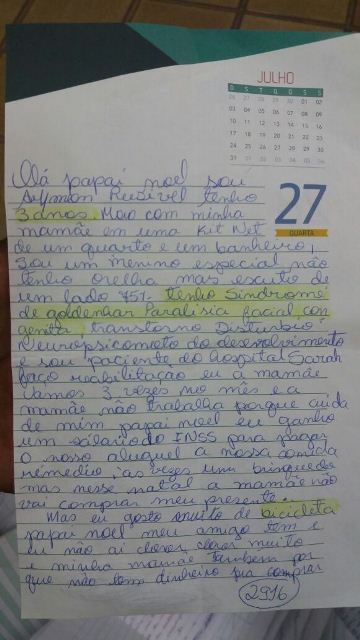 JULHO
D S T Q Q S S
26 27 28 29 30 01 02
03 04 05 06 07 08 09
10 11 12 13 14 15 16
17 18 19 20 21 22 23
24 25 26 27 28 29 30
31
27
QUARTA
Olá papai noel sou
tenho
3 anos. Moro com minha
mamãe em uma Kit Net
de um quarto e um banheiro,
Sou um menino especial não
tenho orelha mas escuto de
um lado tenho Síndrome
de goldenhar Paralisia facial con
genita, transtorno Disturbio
Neuropsicomoto do desenvolvimento
e sou paciente do hospital Sarah
faço reabilitação eu a mamãe
Vamos 3 vezes no mês e a
mamãe não trabalha porque cuida
de mim papai noel eu ganho
um salario do INSS para pagar
O nosso aluguel a nossa comida
remedio, as vezes um brinquedo
mas nesse natal a mamãe não
vai comprar meu presente..
Mas eu gosto muito de bicicleta
papai noel meu amigo tem e
eu não ai choro, choro muito
e minha mamãe tambem por
que não tem dinheiro pra comprar
2916